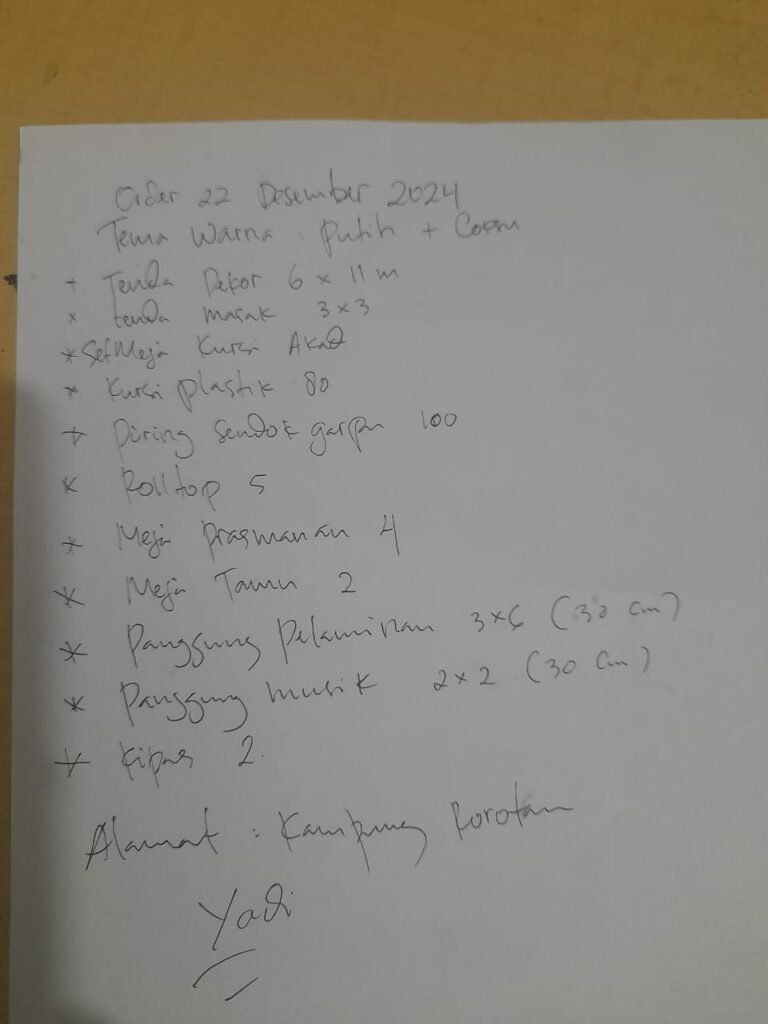 Order 22 Desember 2024
Tema Warna : Putih +
+ Tenda Dekor 6 x 11 m
x tenda masak 3x3
* Set Meja Kursi Akad
* Kursi plastik 80
+ Piring Sendok garpu 100
x Rolltop 5
* Meja Prasmanan 4
* Meja Tamu 2
* Panggung Pelaminan 3x6 (30 cm)
* Panggung musik 2x2 (30 cm)
+ Kipas 2.
Alamat : Kampung Rorotan
Yadi